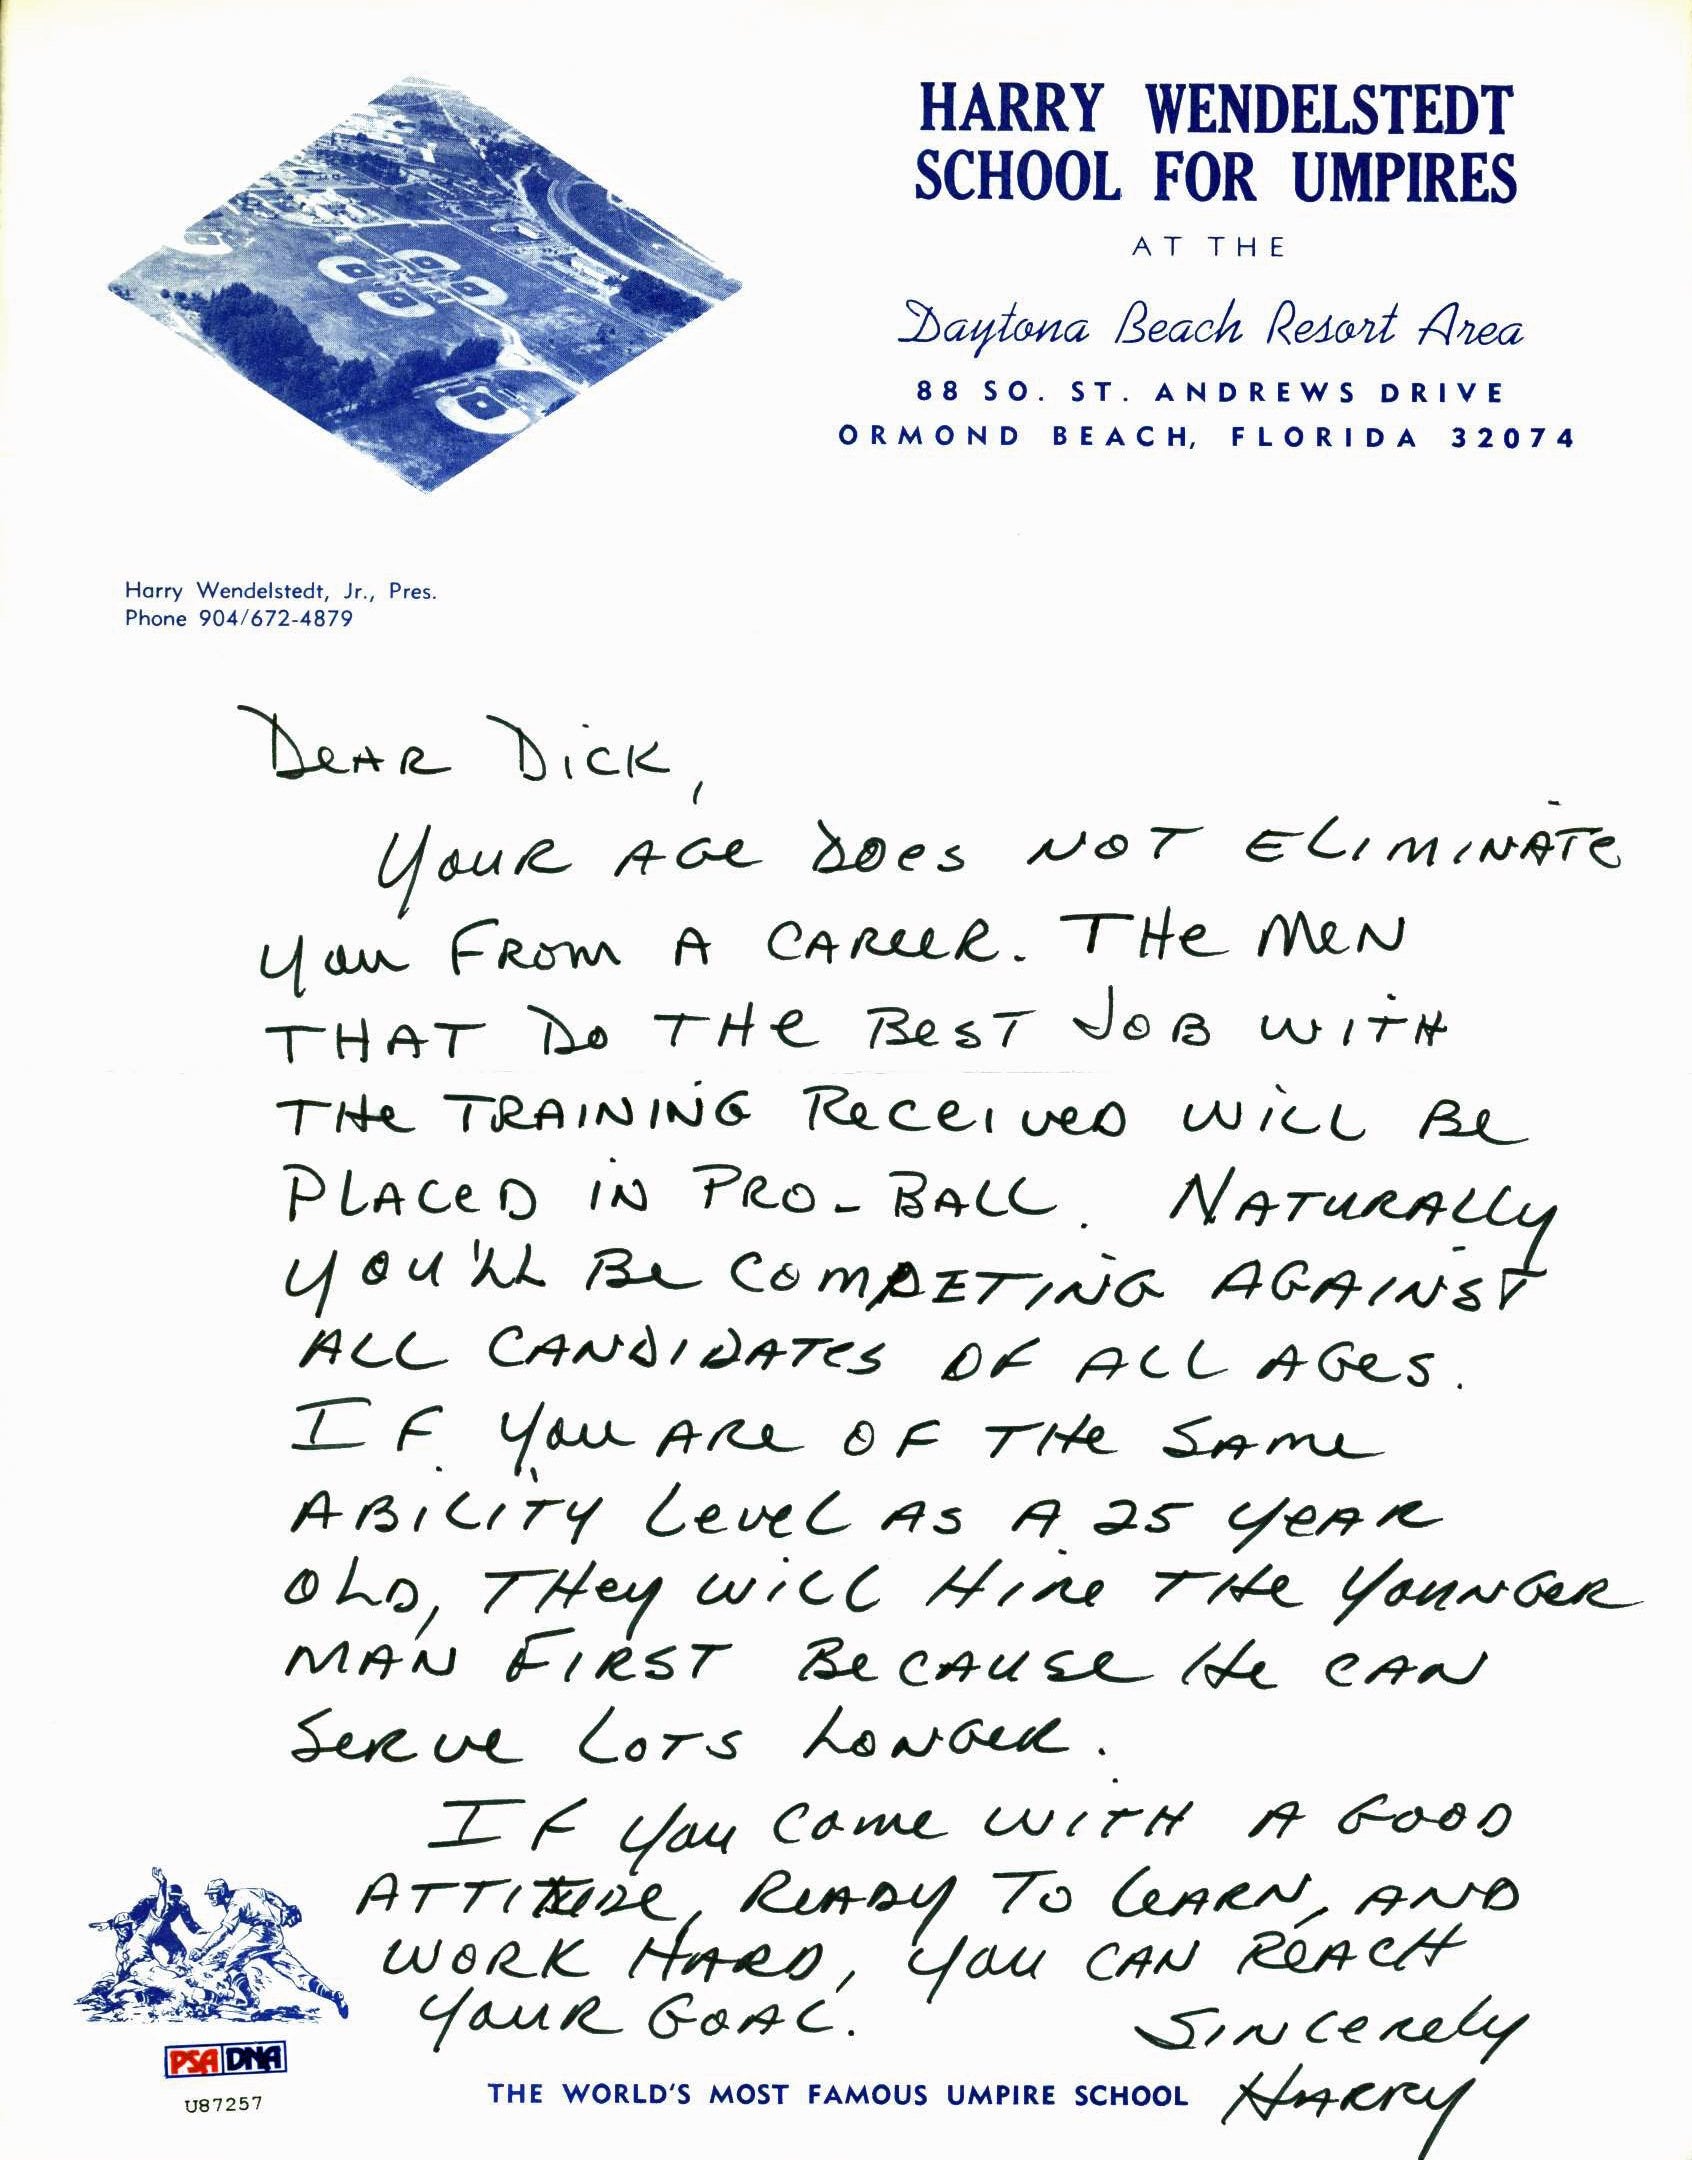 HARRY WENDELSTEDT
SCHOOL FOR UMPIRES
AT THE
Daytona Beach Resort Area
88 SO. ST. ANDREWS DRIVE
ORMOND BEACH, FLORIDA 32074
Harry Wendelstedt, Jr., Pres.
Phone 904/672-4879
DEAR DICK,
YOUR AGE DOES NOT ELIMINATE
YOU FROM A CAREER. THE MEN
THAT DO THE BEST JOB WITH
THE TRAINING RECEIVED WILL BE
PLACED IN PRO-BALL. NATURALLY
YOU'LL BE COMPETING AGAINST
ALL CANDIDATES OF ALL AGES.
IF YOU ARE OF THE SAME
ABILITY LEVEL AS A 25 YEAR
OLD, THEY WILL HIRE THE YOUNGER
MAN FIRST BECAUSE HE CAN
SERVE LOTS LONGER.
IF YOU COME WITH A GOOD
ATTITUDE, READY TO LEARN, AND
WORK HARD, YOU CAN REACH
YOUR GOAL.
SINCERELY
HARRY
PSA DNA
U87257
THE WORLD'S MOST FAMOUS UMPIRE SCHOOL